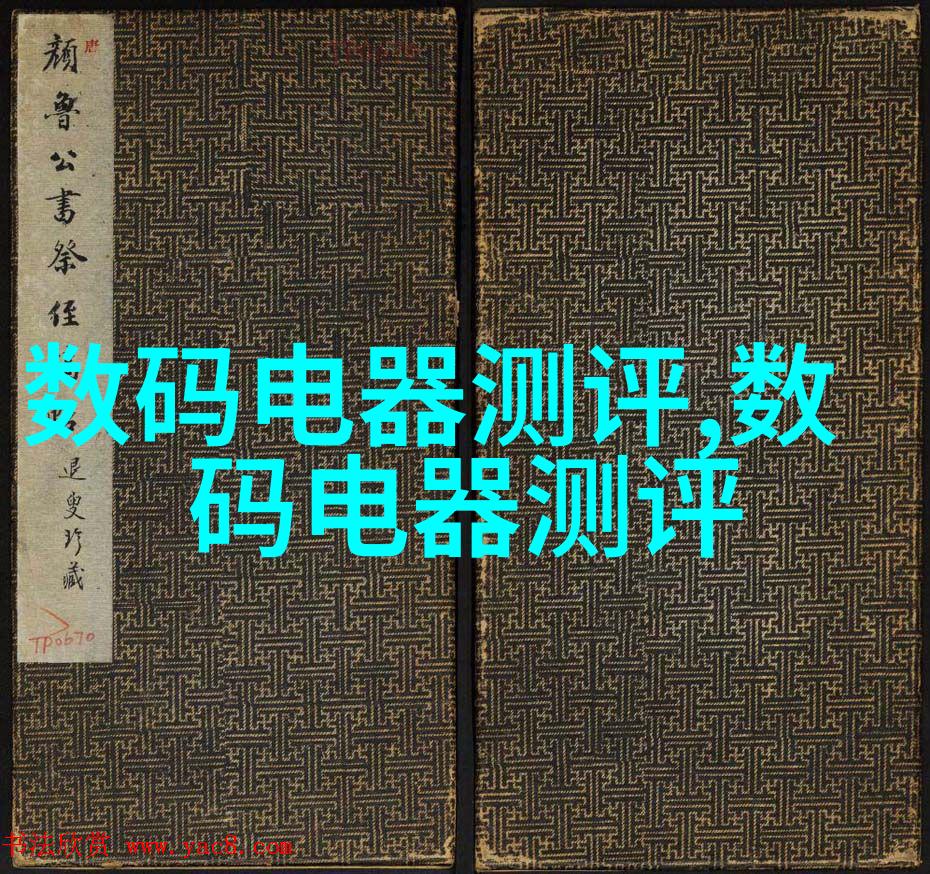 唐
顔魯公書祭侄
退叟珍藏
TP0670
数码电器测评,数
码电器测评
书法欣赏 www.yac8.com